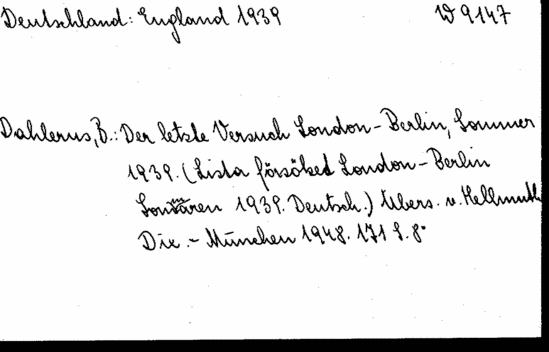 Deutschland: England 1939 W 9147
Dahlerus, B.: Der letzte Versuch London - Berlin, Sommer
1939. (Lista försöket London - Berlin
Sommaren 1939. Deutsch.) Übers. v. Hellmuth
Dix. - München 1948. 171 S. 8°